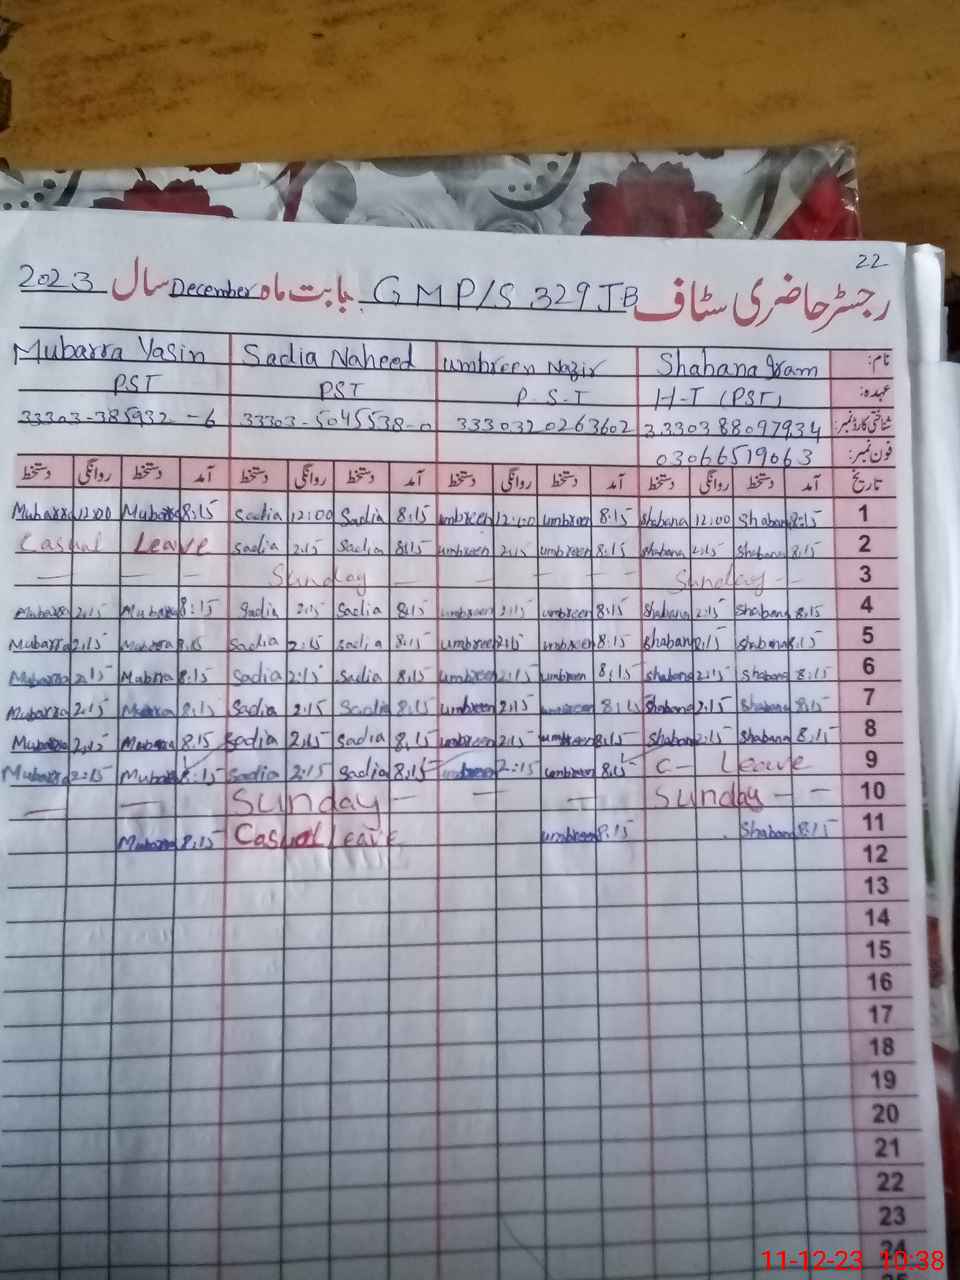 22
رجسٹر حاضری سٹاف GMP/S 329JB بابت ماہ December سال 2023
نام: Shabana Iram Umbreen Nazir Sadia Naheed Mubarra Yasin
عہدہ: H-T (PST) P-S-T PST PST
شناختی کارڈ نمبر: 3330388097934 3330320263602 33303-5045538-0 33303-385932-6
فون نمبر: 03066519063
تاریخ آمد دستخط روانگی دستخط آمد دستخط روانگی دستخط آمد دستخط روانگی دستخط آمد دستخط روانگی دستخط
Mubarra 12:00 Mubarra 8:15 Sadia 12:00 Sadia 8:15 umbreen 12:00 umbreen 8:15 Shabana 12:00 Shabana 8:15 1
Casual Leave Sadia 2:15 Sadia 8:15 umbreen 2:15 umbreen 8:15 Shabana 2:15 Shabana 8:15 2
— — — Sunday — — — — Sunday — 3
Mubarra 2:15 Mubarra 8:15 Sadia 2:15 Sadia 8:15 umbreen 2:15 umbreen 8:15 Shabana 2:15 Shabana 8:15 4
Mubarra 2:15 Mubarra 8:15 Sadia 2:15 Sadia 8:15 umbreen 2:15 umbreen 8:15 Shabana 2:15 Shabana 8:15 5
Mubarra 2:15 Mubarra 8:15 Sadia 2:15 Sadia 8:15 umbreen 2:15 umbreen 8:15 Shabana 2:15 Shabana 8:15 6
Mubarra 2:15 Mubarra 8:15 Sadia 2:15 Sadia 8:15 umbreen 2:15 umbreen 8:15 Shabana 2:15 Shabana 8:15 7
Mubarra 2:15 Mubarra 8:15 Sadia 2:15 Sadia 8:15 umbreen 2:15 umbreen 8:15 Shabana 2:15 Shabana 8:15 8
Mubarra 2:15 Mubarra 8:15 Sadia 2:15 Sadia 8:15 umbreen 2:15 umbreen 8:15 C- Leave 9
— — Sunday — — — Sunday — — 10
Mubarra 8:15 Casual Leave umbreen 8:15 Shabana 8:15 11
12
13
14
15
16
17
18
19
20
21
22
23
24
11-12-23 10:38